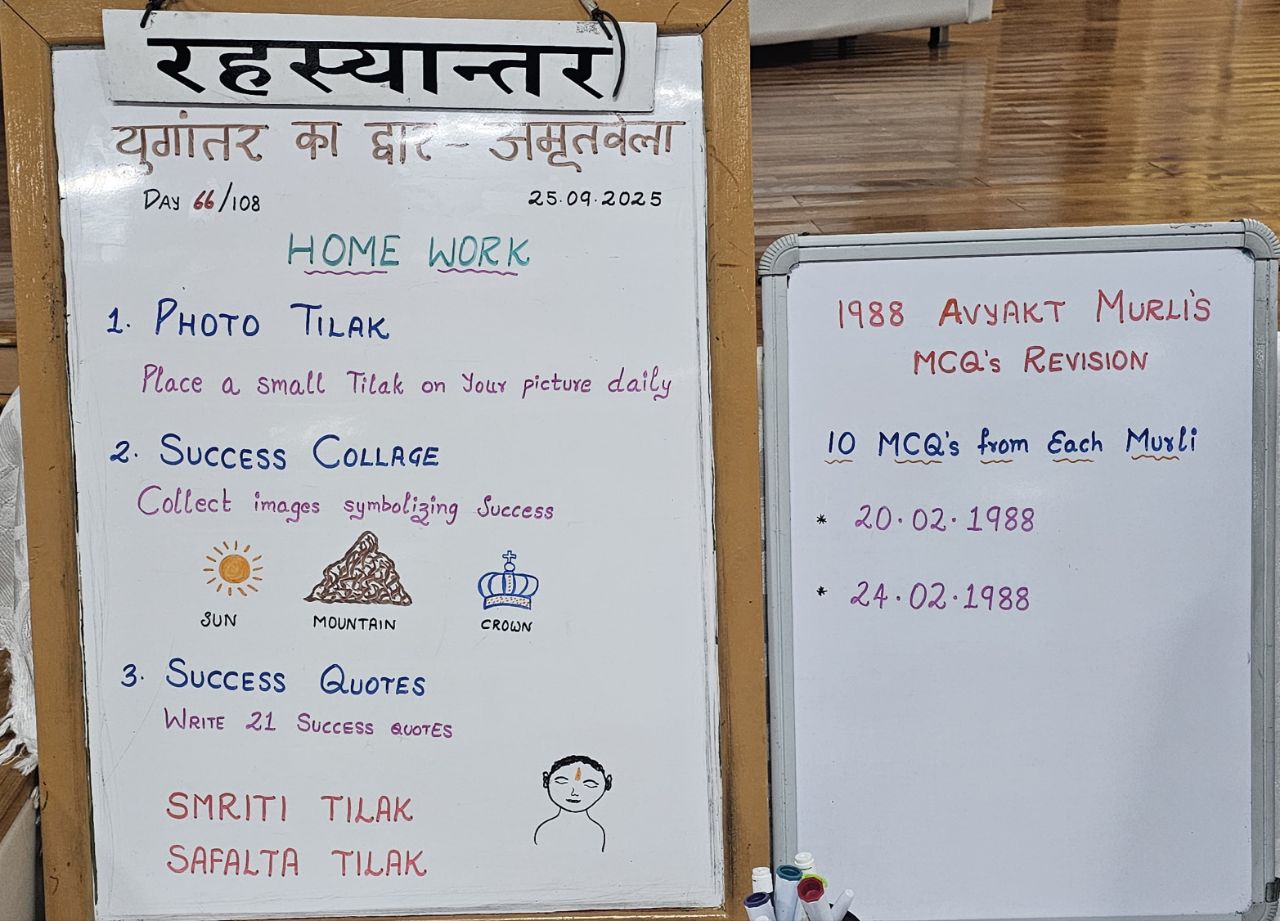 रहस्यान्तर
युगांतर का द्वार - अमृतवेला
DAY 66/108
25.09.2025
HOME WORK
1. PHOTO TILAK
Place a small Tilak on Your picture daily
2. SUCCESS COLLAGE
Collect images symbolizing Success
SUN
MOUNTAIN
CROWN
3. SUCCESS QUOTES
WRITE 21 SUCCESS QUOTES
SMRITI TILAK
SAFALTA TILAK
1988 AVYAKT MURLI'S
MCQ'S REVISION
10 MCQ's from Each Murli
* 20.02.1988
* 24.02.1988